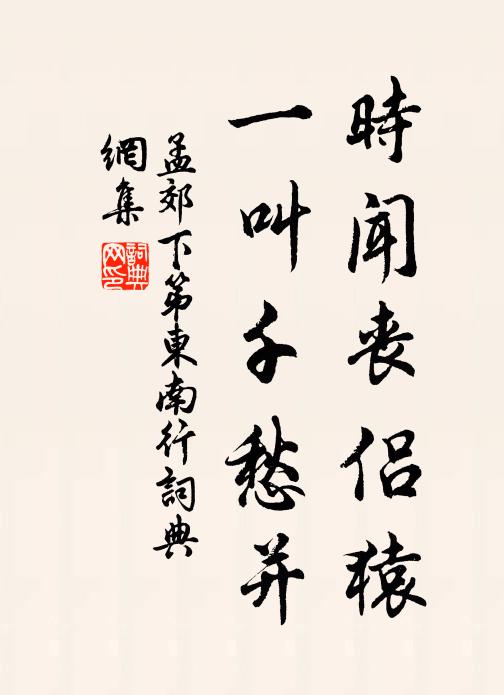 時聞喪侣猿
一叫千愁并
孟郊下第東南行詞典
網集
詞典
网印